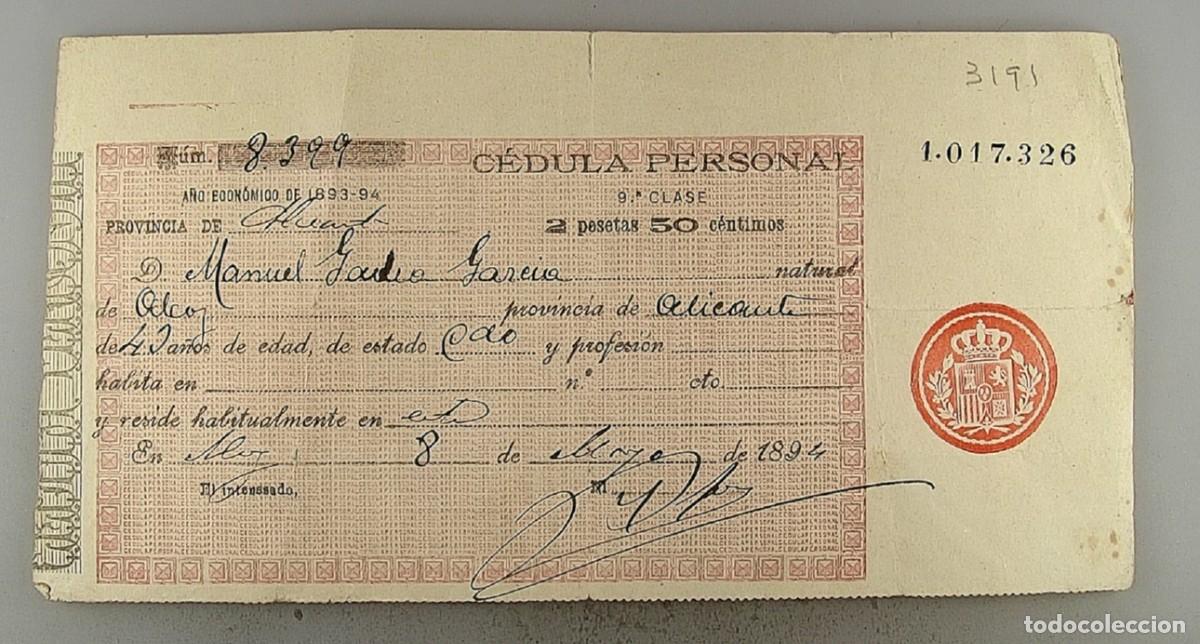 3191
Núm. 8.399
CÉDULA PERSONAL
1.017.326
AÑO ECONÓMICO DE 1893-94
9.ª CLASE
PROVINCIA DE Alicante
2 pesetas 50 céntimos
D Manuel Gadea Garcia natural
de Alcoy provincia de Alicante
de 42 años de edad, de estado Cdo y profesión
habita en nº cto
y reside habitualmente en
En Alcoy 8 de Marzo de 1894
El interesado,
El
todocoleccion